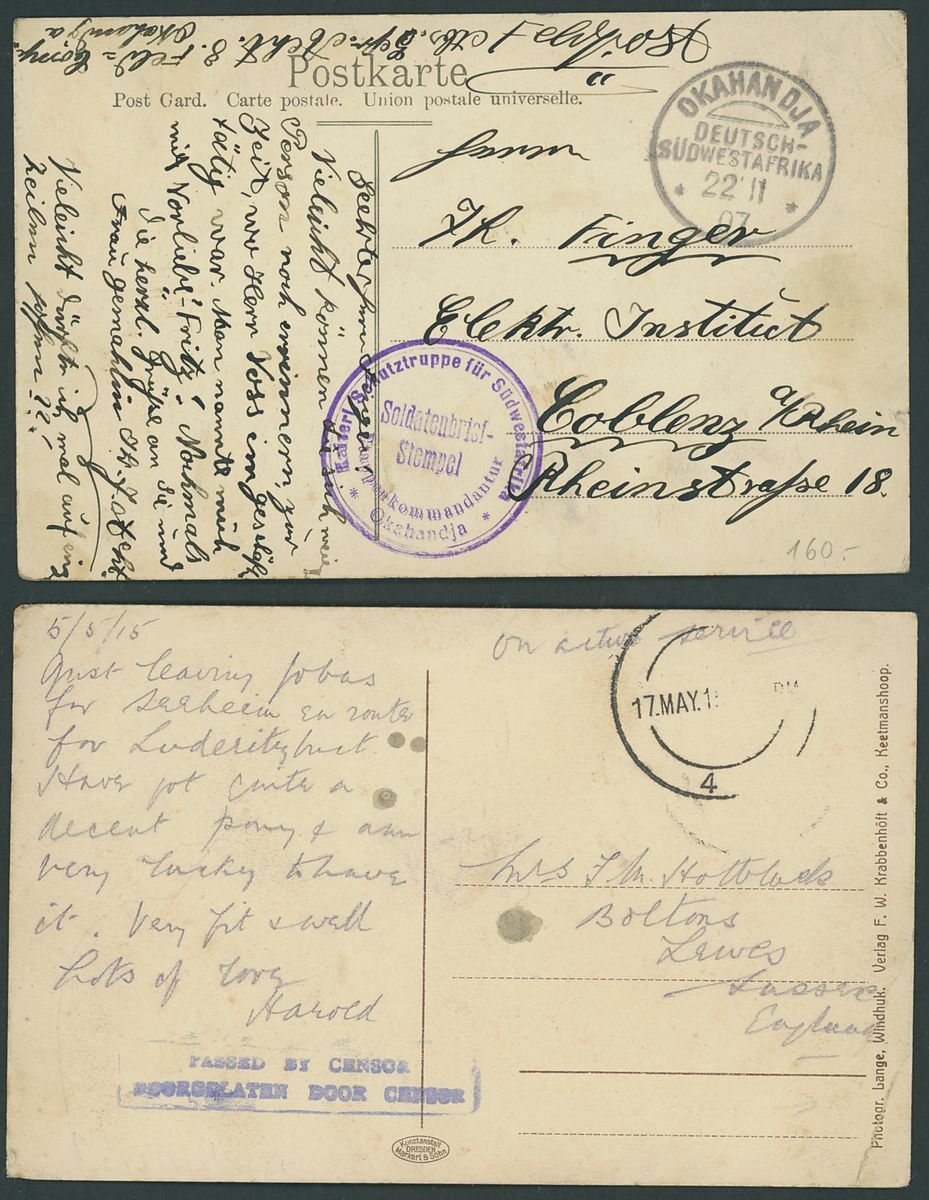 Feldpost
Komp.
Okahandja
Postkarte
Post Gard. Carte postale. Union postale universelle.
OKAHANDJA
DEUTSCH-
SÜDWESTAFRIKA
* 22 11 *
07
Herrn
Th. Finger
Elektr. Institut
Coblenz a/Rhein
Rheinstraße 18.
160.-
Kaiserl. Schutztruppe für Südwestafrika
Soldatenbrief-
Stempel
* Etappenkommandantur *
Okahandja
Vieleicht können sie sich meiner
Person noch erinnern, zur
Zeit, wo Herr Voss im Geschäft
tätig war. Man nannte mich
mit Vorliebe „Fritz". Nochmals
die herzl. Grüße an Sie und
Frau Gemahlin
Vieleicht dürfte ich mal auf einige
Zeilen hoffen??
5/5/15
Just leaving
for Seeheim en route
for Luderitzbucht.
Have got quite a
decent pony & am
very lucky to have
it. Very fit & well
Lots of love
Harold
On active service
17.MAY.1
PM
4
Mrs
Boltons
Lewes
Sussex
England
PASSED BY CENSOR
DOORGELATEN DOOR CENSOR
Kunstanstalt
DRESDEN
Markert & Sohn
Photogr. Lange, Windhuk. Verlag F. W. Krabbenhöft & Co., Keetmanshoop.